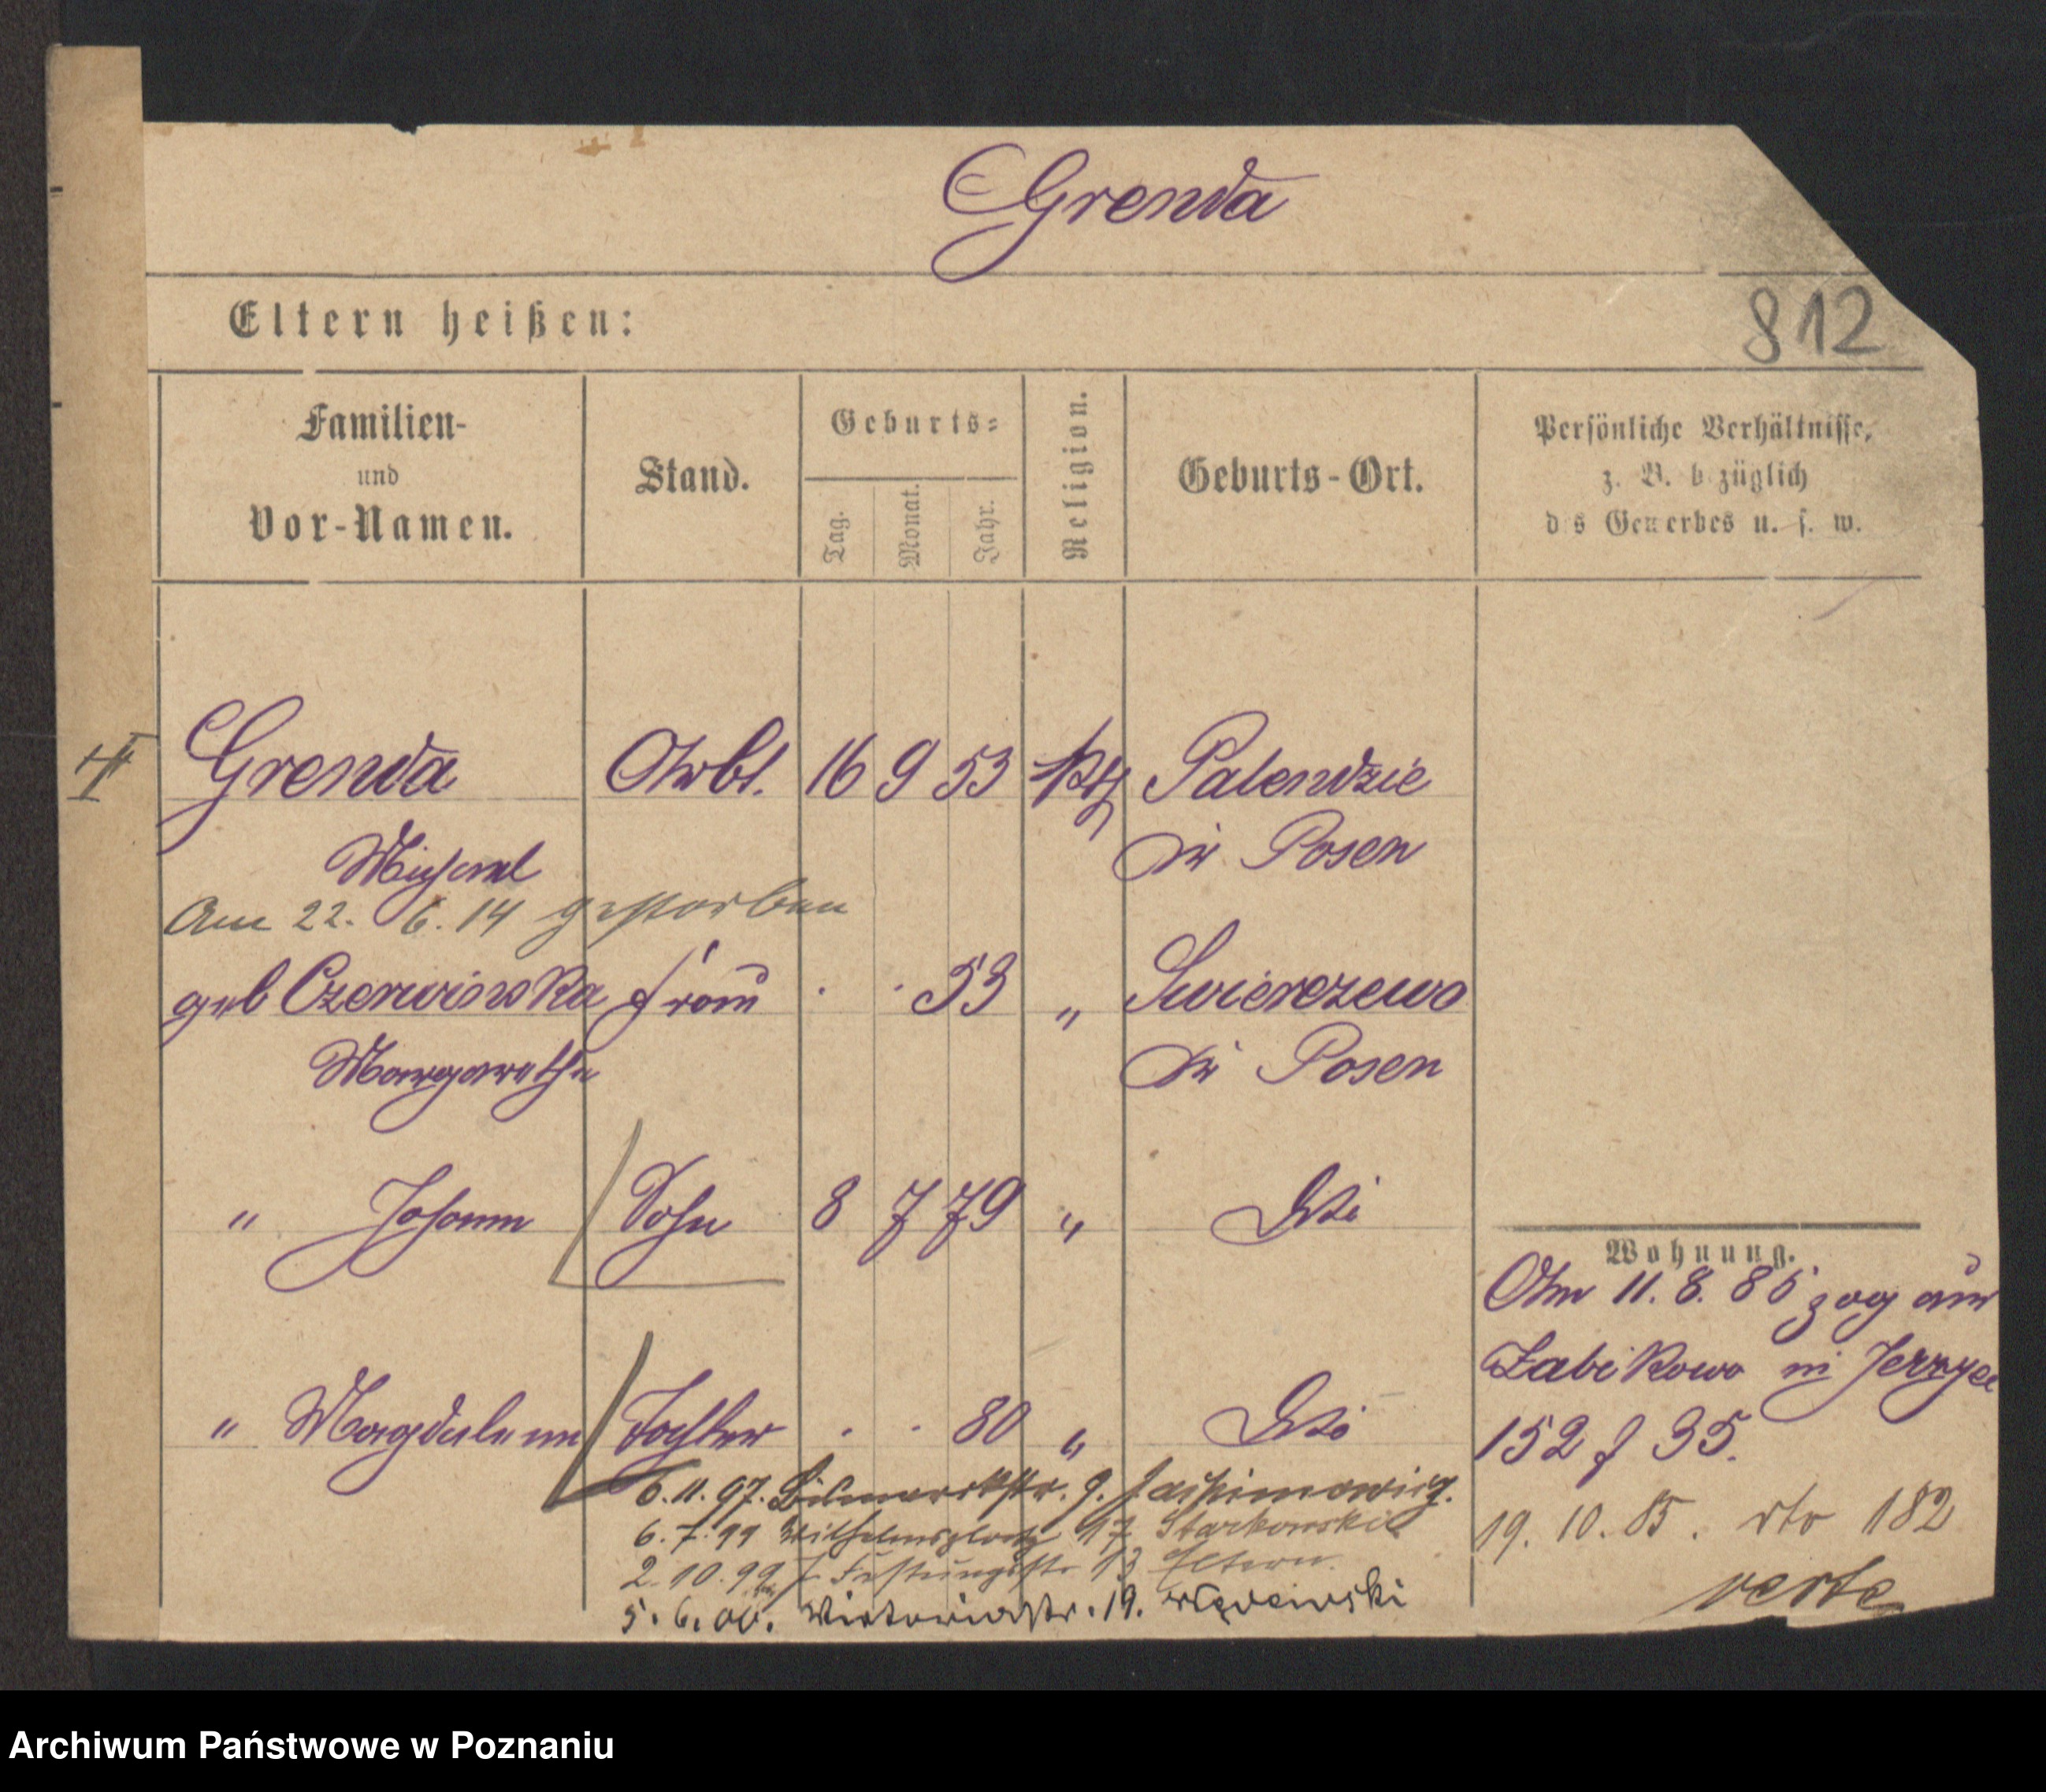 Grenda
Eltern heißen:
812
Familien-
und
Vor-Namen.
Stand.
Geburts-
Tag.
Monat.
Jahr.
Religion.
Geburts-Ort.
Persönliche Verhältnisse,
z. B. b züglich
d s Gewerbes u. s. w.
Grenda Arbt. 16 9 53 Palendzie
Michael Kr Posen
Am 22. 6. 14 gestorben
geb Czerwinska Frau . . 53 " Swierczewo
Margarethe Kr Posen
" Johann Sohn 8 7 79 " Dto
" Magdalena Tochter . . 80 " Dto
Wohnung.
Am 11. 8. 85 zog aus
Zabikowo in Jerzyce
152 f 35.
19. 10. 85. dto 182
verte
6. 11. 97. Bismarckstr. 9. Jachimowicz.
6. 7. 99 Wilhelmsplatz 17 Starkowski
2. 10. 99 Festungsstr 13 Eltern
5. 6. 00. Victoriastr. 19.
Archiwum Państwowe w Poznaniu